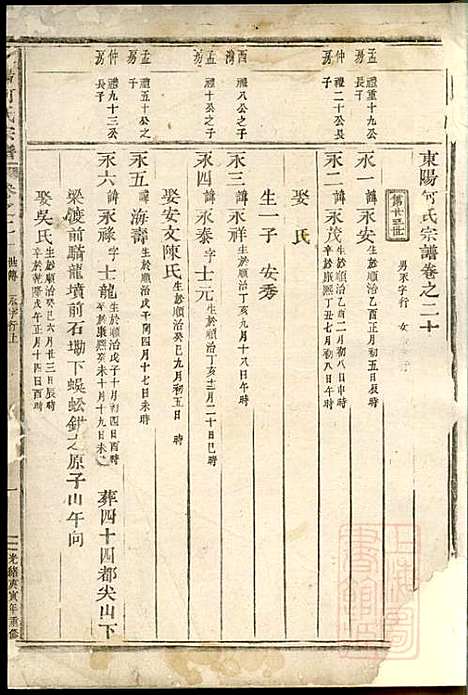 東陽何氏宗譜卷之二十
第廿五世
男永字行 女
孟房 禮重十九公長子
永一 諱永安 生於順治乙酉正月初二日
仲房 禮二十公長子
永二 諱永茂 生於順治乙酉二月初八日午時
娶 氏
西濟 禮十公之子
永三 諱永祥 生於順治丁亥九月十八日
生一子 安秀
孟房 禮十公之子
永四 諱永泰 字士元 生於順治丁亥三月二十日時
娶安文陳氏 生於順治癸巳九月初五日 時
孟房 禮五十公之子
永五 諱海壽 生於順治戊子閏四月十七日未時
仲房 禮九十三公長子
永六 諱永祿 字士龍 生於順治戊子十月初四日酉時 卒於康熙癸未十月十九日未時 葬四十四都尖山下
梁渡前騎龍墳前石塴下蜈蚣鉗之原子山午向
娶吳氏 生於順治癸巳六月廿三日辰時 卒於乾隆戊午正月十四日酉時
何氏宗譜
永字行上
一
光緒庚寅年重修